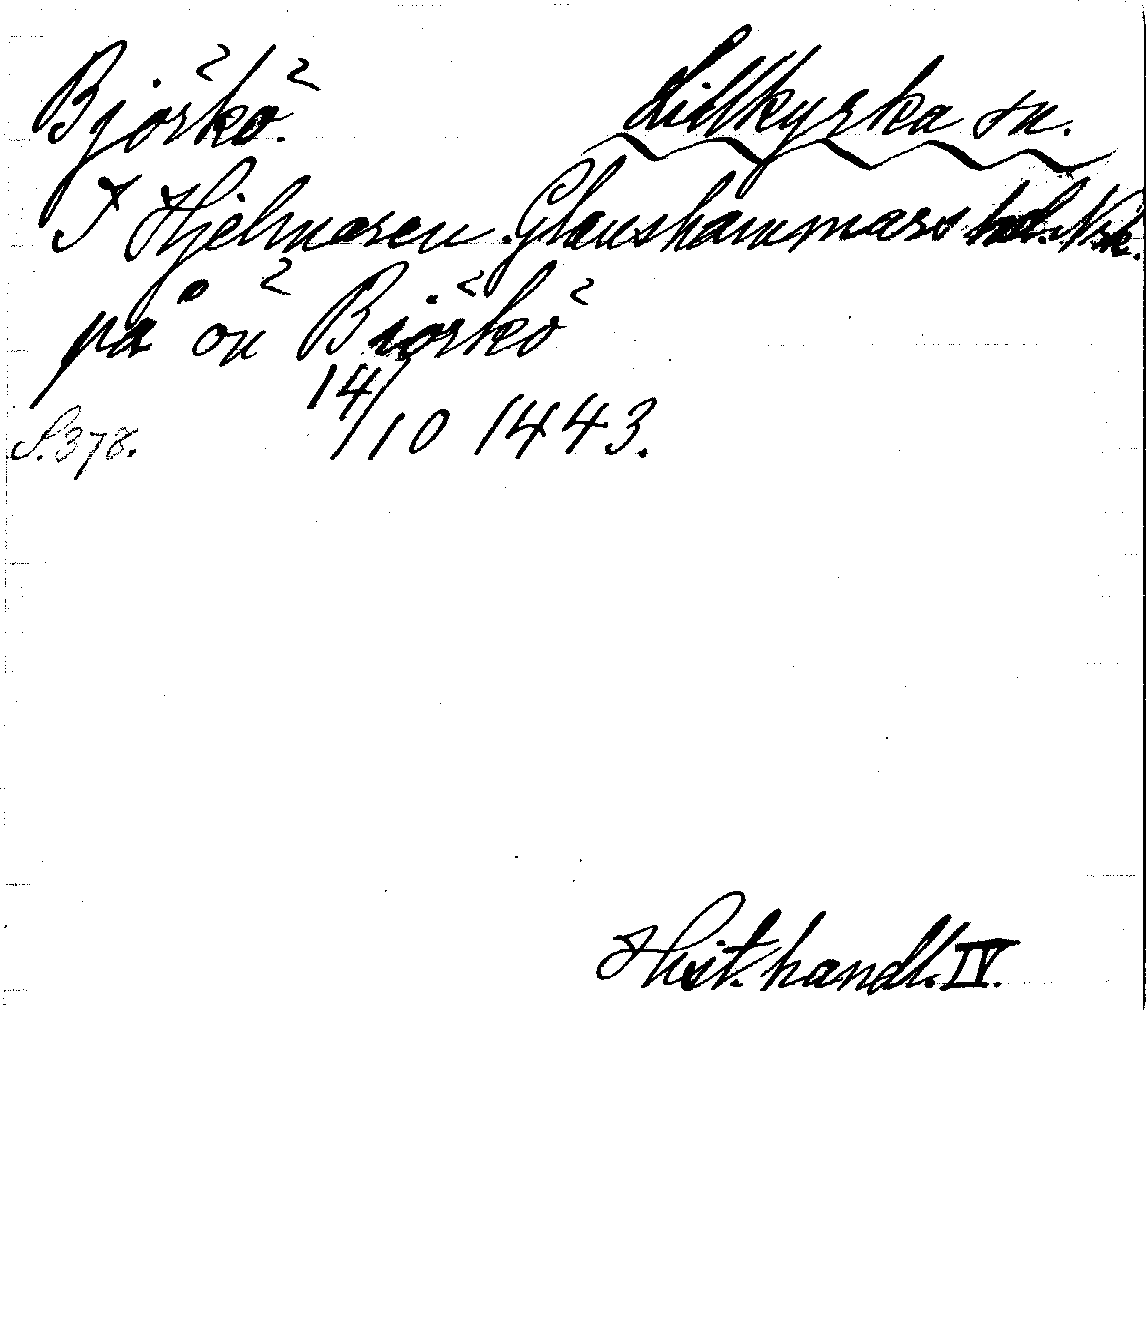 Björkö. Lillkyrka sn.
I Hjelmaren. Glanshammars hd. Nrk.
på ön Björkö
14/10 1443.
S. 378.
Hist. handl. IV.